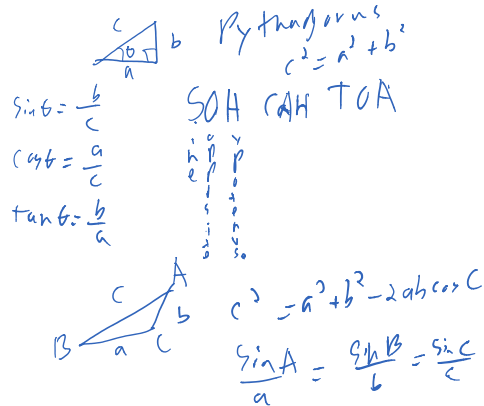 c
b
θ
a
Pythagorus
c² = a² + b²
sinθ = b/c
SOH CAH TOA
cosθ = a/c
tanθ = b/a
ine
opposite
ypotenus.
A
c
b
B
a
C
c² = a² + b² - 2ab cos C
sin A/a = sin B/b = sin C/c